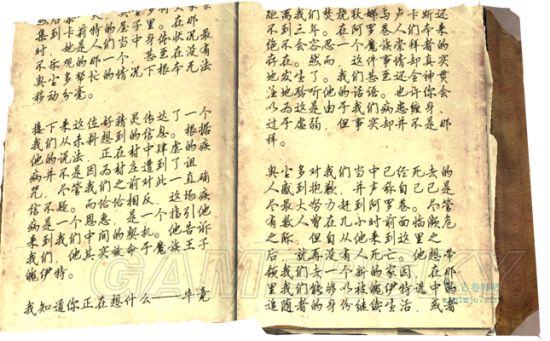 集到卡莉特的屋子里。在那
时，她是人们当中身体状况最
不乐观的那一个，甚至在没有
奥尘多帮忙的情况下根本无法
移动分毫。
接下来这位好精灵传达了一个
我们从未料想到的信息。根据
他的说法，正在村中肆虐的疾
病并不是因为村庄遭到了诅
咒，尽管我们之前对此一直确
信不疑。而恰恰相反，这场疾
病是一个恩惠，是一个指引他
来到我们中间的契机。他告诉
我们，他其实效命于魔族王子
魄伊特。
我知道你正在想什么——毕竟
距离我们焚烧狄娜与卢卡斯还
不到三年。在阿罗卷人们向来
绝不会容忍一个魔族崇拜者的
存在。然而，这件事情却真实
地发生了。我们甚至还全神贯
注地聆听他的话语。也许你会
以为这是由于我们病患缠身，
过于虚弱，但事实却并不是那
样。
奥尘多对我们当中已经死去的
人感到抱歉，并声称自己已是
尽最大努力赶到阿罗卷。尽管
有数人曾在几小时前面临濒危
之际，但自从他来到这里之
后，就再没有人死亡。他想带
领我们去一个新的家园，在那
里我们能够以被魄伊特选中的
追随者的身份继续生活，或者
GAMERSKY